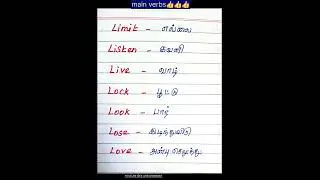 main verbs👍👍👍
Limit - எல்லை
Listen - கவனி
Live - வாழ்
Lock - பூட்டு
Look - பார்
Lose -
Love - அன்பு செலுத்து